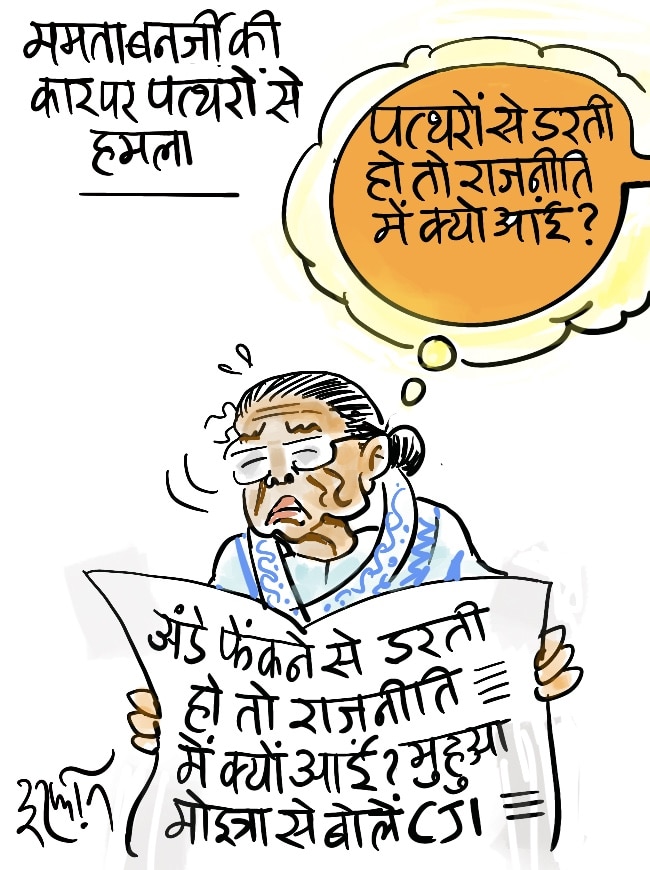 ममता बनर्जी की
कार पर पत्थरों से
हमला
पत्थरों से डरती
हो तो राजनीति
में क्यो आई?
अंडे फेंकने से डरती
हो तो राजनीति
में क्यों आई? मुहुआ
मोइत्रा से बोलें CJI
इरफ़ान